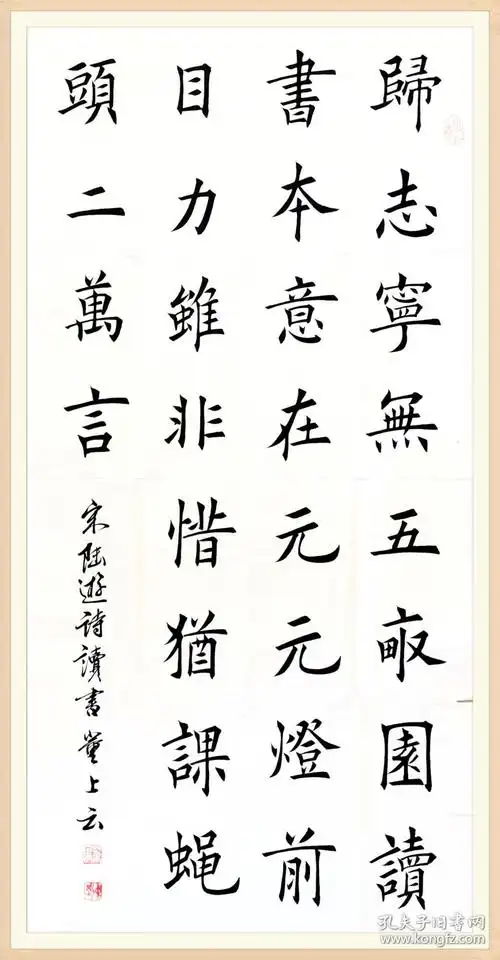 歸志寧無五畂園讀
書本意在元元燈前
目力雖非惜猶課蝇
頭二萬言
宋陆遊詩讀書董上云
孔夫子旧书网
www.kongfz.com